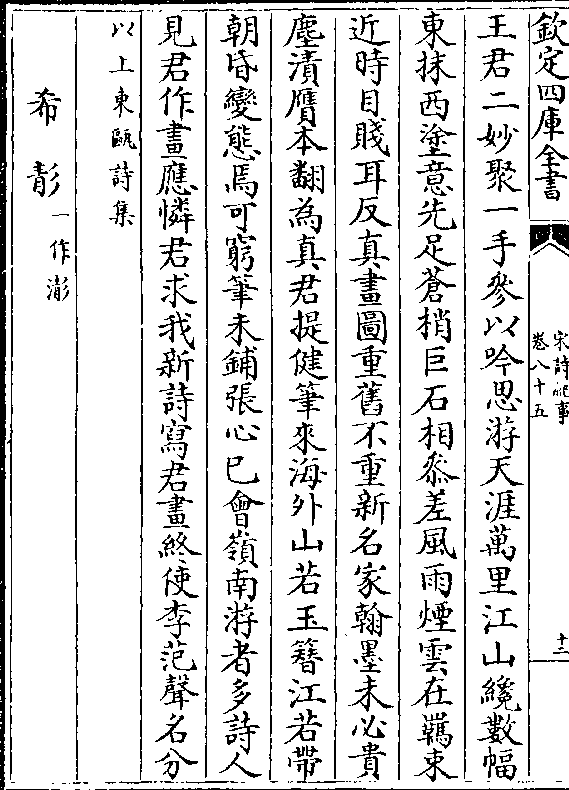 欽定四庫全書
宋詩紀事
卷八十五
十二
王君二妙聚一手參以吟思游天涯萬里江山纔數幅
東抹西塗意先足蒼梢巨石相參差風雨煙雲在羈束
近時目賤耳反真畫圖重舊不重新名家翰墨未必貴
塵漬贗本翻為真君提健筆來海外山若玉簪江若帶
朝昏變態焉可窮筆未鋪張心已會嶺南游者多詩人
見君作畫應憐君求我新詩寫君畫終使李范聲名分
以上東甌詩集
希彭一作澎